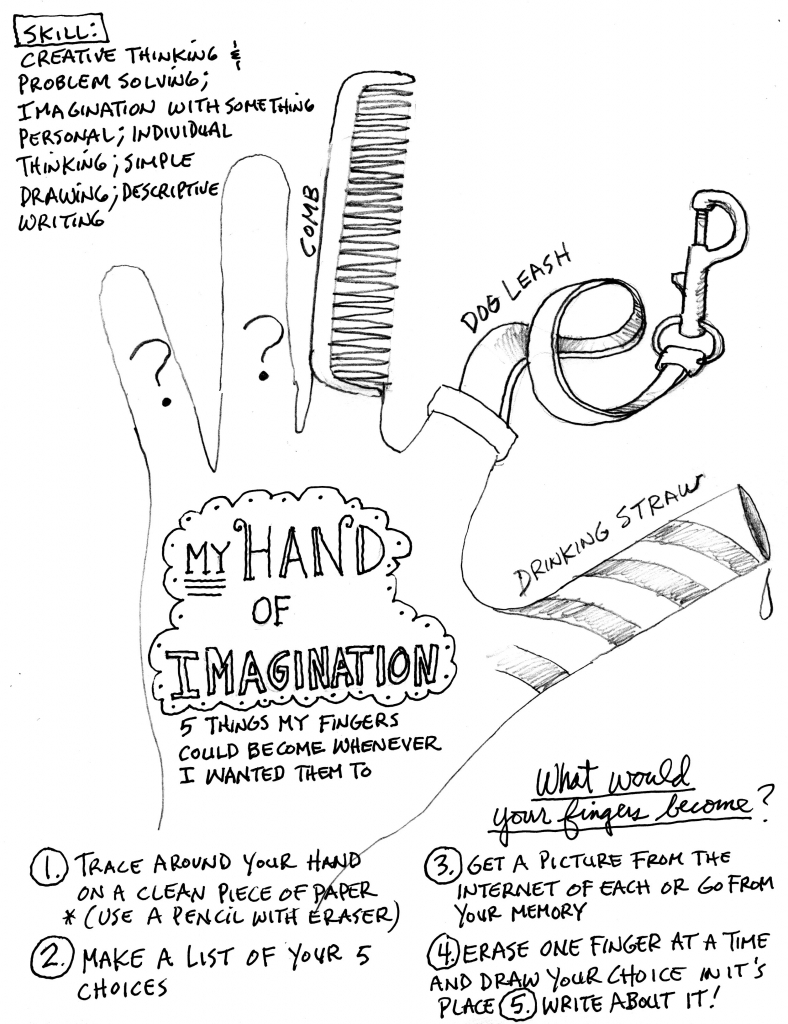 SKILL:
CREATIVE THINKING &
PROBLEM SOLVING;
IMAGINATION WITH SOMETHING
PERSONAL; INDIVIDUAL
THINKING; SIMPLE
DRAWING; DESCRIPTIVE
WRITING
COMB
DOG LEASH
?
?
DRINKING STRAW
MY HAND
OF
IMAGINATION
5 THINGS MY FINGERS
COULD BECOME WHENEVER
I WANTED THEM TO
What would
your fingers become?
1. TRACE AROUND YOUR HAND
ON A CLEAN PIECE OF PAPER
* (USE A PENCIL WITH ERASER)
2. MAKE A LIST OF YOUR 5
CHOICES
3. GET A PICTURE FROM THE
INTERNET OF EACH OR GO FROM
YOUR MEMORY
4. ERASE ONE FINGER AT A TIME
AND DRAW YOUR CHOICE IN IT'S
PLACE 5. WRITE ABOUT IT!